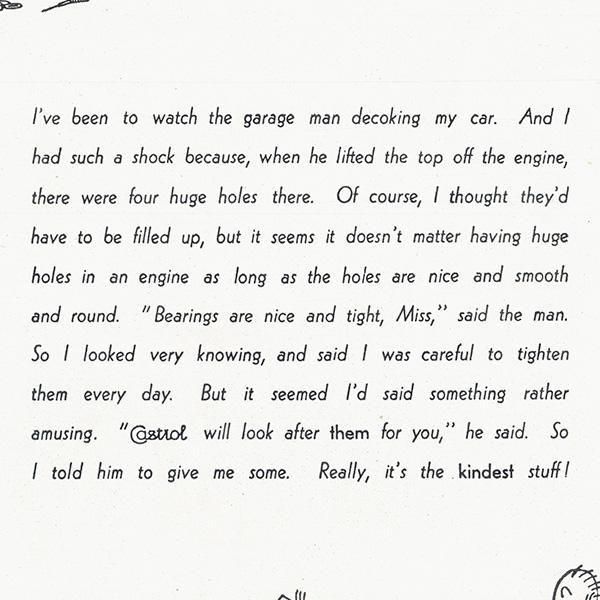 I've been to watch the garage man decoking my car. And I
had such a shock because, when he lifted the top off the engine,
there were four huge holes there. Of course, I thought they'd
have to be filled up, but it seems it doesn't matter having huge
holes in an engine as long as the holes are nice and smooth
and round. "Bearings are nice and tight, Miss," said the man.
So I looked very knowing, and said I was careful to tighten
them every day. But it seemed I'd said something rather
amusing. "Castrol will look after them for you," he said. So
I told him to give me some. Really, it's the kindest stuff!